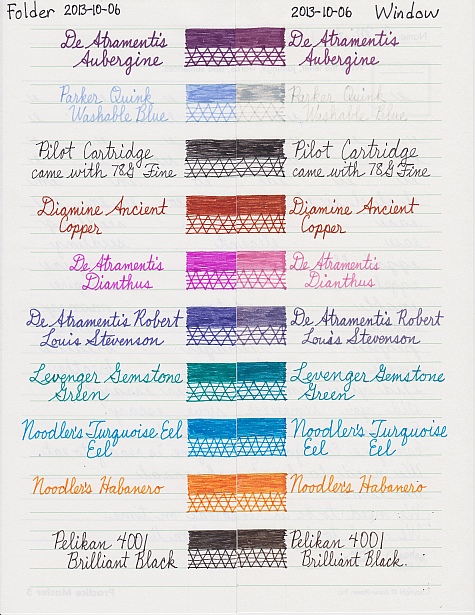 Folder 2013-10-06
2013-10-06 Window
De Atramentis
Aubergine
De Atramentis
Aubergine
Parker Quink
Washable Blue
Parker Quink
Washable Blue
Pilot Cartridge
came with 78G Fine
Pilot Cartridge
came with 78G Fine
Diamine Ancient
Copper
Diamine Ancient
Copper
De Atramentis
Dianthus
De Atramentis
Dianthus
De Atramentis Robert
Louis Stevenson
De Atramentis Robert
Louis Stevenson
Levenger Gemstone
Green
Levenger Gemstone
Green
Noodler's Turquoise Eel
Eel
Noodler's Turquoise Eel
Eel Eel
Noodler's Habanero
Noodler's Habanero
Pelikan 4001
Brilliant Black
Pelikan 4001
Brilliant Black.